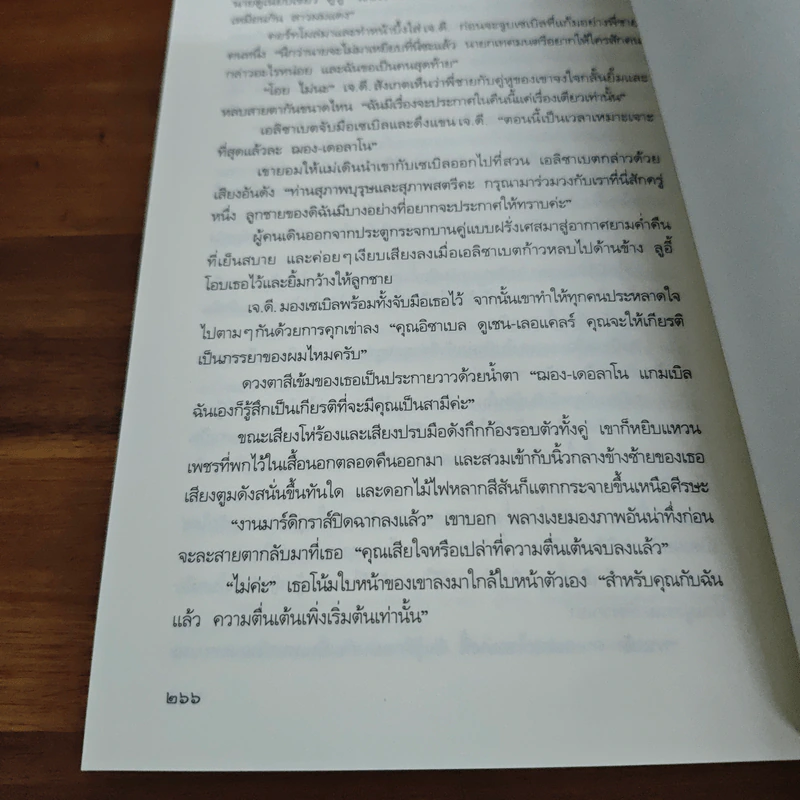 เหมือนกัน สาวผมแดง"
คอร์ทโผล่มาและทำหน้าบึ้งใส่ เจ.ดี. ก่อนจะจูบเซเบิลที่แก้มอย่างพี่ชาย
คนหนึ่ง "นึกว่านายจะไม่มาเหยียบที่นี่ซะแล้ว นายกเทศมนตรีอยากให้ใครสักคน
กล่าวอะไรหน่อย และฉันขอเป็นคนสุดท้าย"
"โอย ไม่นะ" เจ.ดี. สังเกตเห็นว่าพี่ชายกับคู่หูของเขาจงใจกลั้นยิ้มและ
หลบสายตากันขนาดไหน "ฉันมีเรื่องจะประกาศในคืนนี้แค่เรื่องเดียวเท่านั้น"
เอลิซาเบตจับมือเซเบิลและดึงแขน เจ.ดี. "ตอนนี้เป็นเวลาเหมาะเจาะ
ที่สุดแล้วละ ฌอง-เดอลาโน"
เขายอมให้แม่เดินนำเขากับเซเบิลออกไปที่สวน เอลิซาเบตกล่าวด้วย
เสียงอันดัง "ท่านสุภาพบุรุษและสุภาพสตรีคะ กรุณามาร่วมวงกับเราที่นี่สักครู่
หนึ่ง ลูกชายของดิฉันมีบางอย่างที่อยากจะประกาศให้ทราบค่ะ"
ผู้คนเดินออกจากประตูกระจกบานคู่แบบฝรั่งเศสมาสู่อากาศยามค่ำคืน
ที่เย็นสบาย และค่อยๆ เงียบเสียงลงเมื่อเอลิซาเบตก้าวหลบไปด้านข้าง ลูอี้
โอบเธอไว้และยิ้มกว้างให้ลูกชาย
เจ.ดี. มองเซเบิลพร้อมทั้งจับมือเธอไว้ จากนั้นเขาทำให้ทุกคนประหลาดใจ
ไปตามๆ กันด้วยการคุกเข่าลง "คุณอิซาเบล ดูเชน-เลอแคลร์ คุณจะให้เกียรติ
เป็นภรรยาของผมไหมครับ"
ดวงตาสีเข้มของเธอเป็นประกายวาวด้วยน้ำตา "ฌอง-เดอลาโน แกมเบิล
ฉันเองก็รู้สึกเป็นเกียรติที่จะมีคุณเป็นสามีค่ะ"
ขณะเสียงโห่ร้องและเสียงปรบมือดังกึกก้องรอบตัวทั้งคู่ เขาก็หยิบแหวน
เพชรที่พกไว้ในเสื้อนอกตลอดคืนออกมา และสวมเข้ากับนิ้วกลางข้างซ้ายของเธอ
เสียงตูมดังสนั่นขึ้นทันใด และดอกไม้ไฟหลากสีสันก็แตกกระจายขึ้นเหนือศีรษะ
"งานมาร์ดิกราส์ปิดฉากลงแล้ว" เขาบอก พลางเงยมองภาพอันน่าทึ่งก่อน
จะละสายตากลับมาที่เธอ "คุณเสียใจหรือเปล่าที่ความตื่นเต้นจบลงแล้ว"
"ไม่ค่ะ" เธอโน้มใบหน้าของเขาลงมาใกล้ใบหน้าตัวเอง "สำหรับคุณกับฉัน
แล้ว ความตื่นเต้นเพิ่งเริ่มต้นเท่านั้น"
๒๖๖